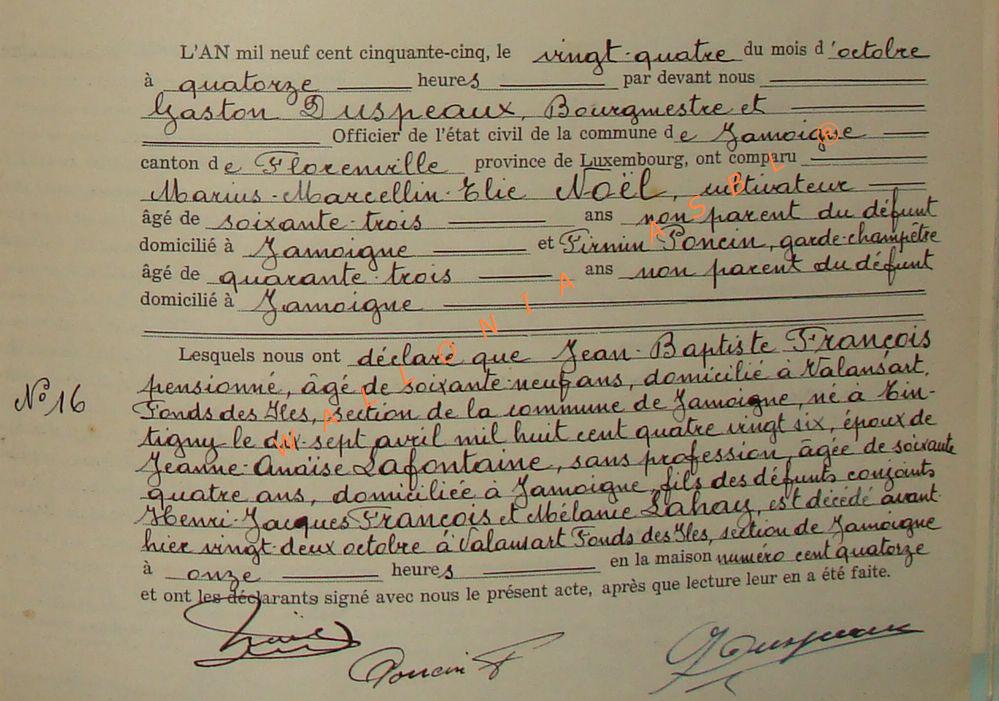 L'AN mil neuf cent cinquante-cinq, le vingt-quatre du mois d'octobre
à quatorze heures par devant nous
Gaston Duspeaux, Bourgmestre et
Officier de l'état civil de la commune de Jamoigne
canton de Florenville province de Luxembourg, ont comparu
Marius-Marcellin-Elie Noël, cultivateur
âgé de soixante-trois ans non parent du défunt
domicilié à Jamoigne et Firmin Poncin, garde-champêtre
âgé de quarante-trois ans non parent du défunt
domicilié à Jamoigne
Lesquels nous ont déclaré que Jean-Baptiste François
pensionné, âgé de soixante-neuf ans, domicilié à Valansart,
N° 16
Fonds des Iles, section de la commune de Jamoigne, né à Tin-
tigny le dix-sept avril mil huit cent quatre vingt six, époux de
Jeanne-Anaïse Lafontaine, sans profession, âgée de soixante
quatre ans, domiciliée à Jamoigne, fils des défunts conjoints
Henri-Jacques François et Mélanie Lahay, est décédé avant-
hier vingt-deux octobre à Valansart Fonds des Iles, section de Jamoigne
à onze heures en la maison numéro cent quatorze
et ont les déclarants signé avec nous le présent acte, après que lecture leur en a été faite.
Poncin F
GDuspeaux
WALLONIA ASBL ©